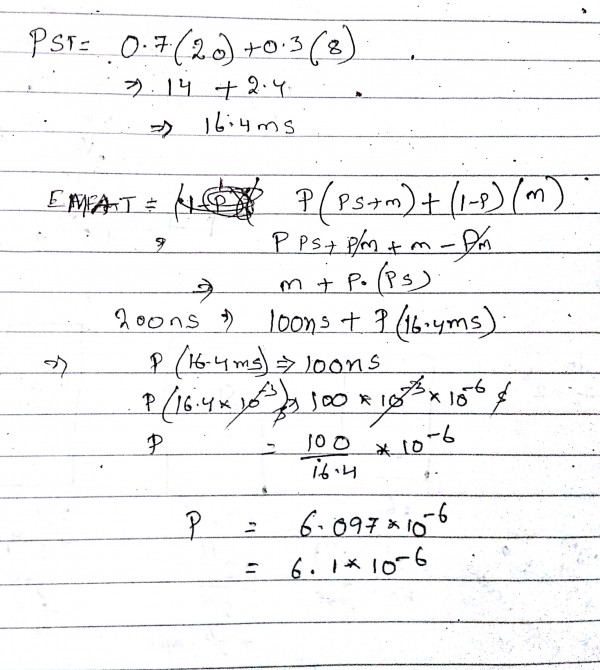 PST = 0.7(20) + 0.3(8)
⇒ 14 + 2.4
⇒ 16.4 ms
EMAT = P(PS+m) + (1-P)(m)
⇒ P PS + Pm + m - Pm
⇒ m + P.(PS)
200ns ⇒ 100ns + P(16.4ms)
⇒ P(16.4ms) ⇒ 100ns
P(16.4 × 10⁻³) ⇒ 100 * 10⁻³ × 10⁻⁶
P = 100/16.4 * 10⁻⁶
P = 6.097 * 10⁻⁶
= 6.1 * 10⁻⁶